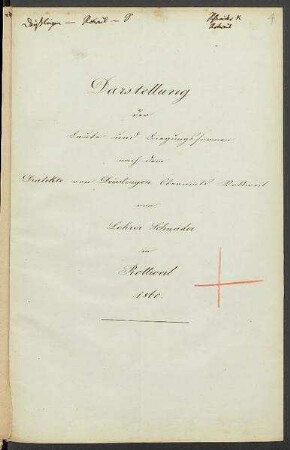 Deißlingen – Rottweil – S
Schneider K
Rottweil
Darstellung
der
Laute und Biegungsformen
nach dem
Dialekte von Oberamts Rottweil
von
Lehrer Schneider
in
Rottweil
1860